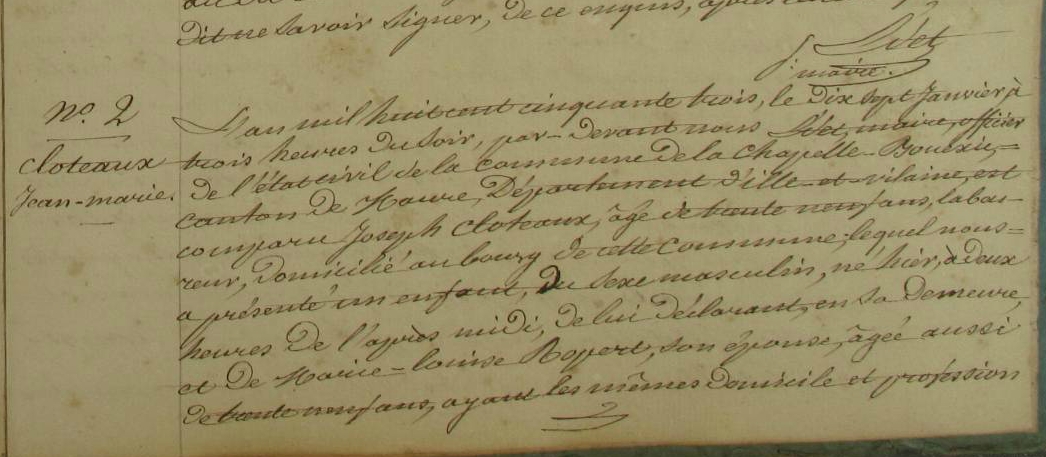 dit ne savoir signer, de ce enquis, après
Lvet
maire.
no. 2
cloteaux
Jean-marie.
L'an mil huit cent cinquante trois, le dix sept Janvier, à
trois heures du soir, par-devant nous maire, officier
de l'état civil de la commune de la Chapelle-Bouëxic,
canton de Maure, Département d'ille-et-vilaine, est
comparu Joseph Cloteaux, âgé de trente neuf ans, labou-
reur, domicilié au bourg de cette commune, lequel nous
a présenté un enfant, du sexe masculin, né hièr, à deux
heures de l'après midi, de lui déclarant, en sa demeure,
et de Marie-Louise Ropert, son épouse, âgée aussi
de trente neuf ans, ayant les mêmes domicile et profession